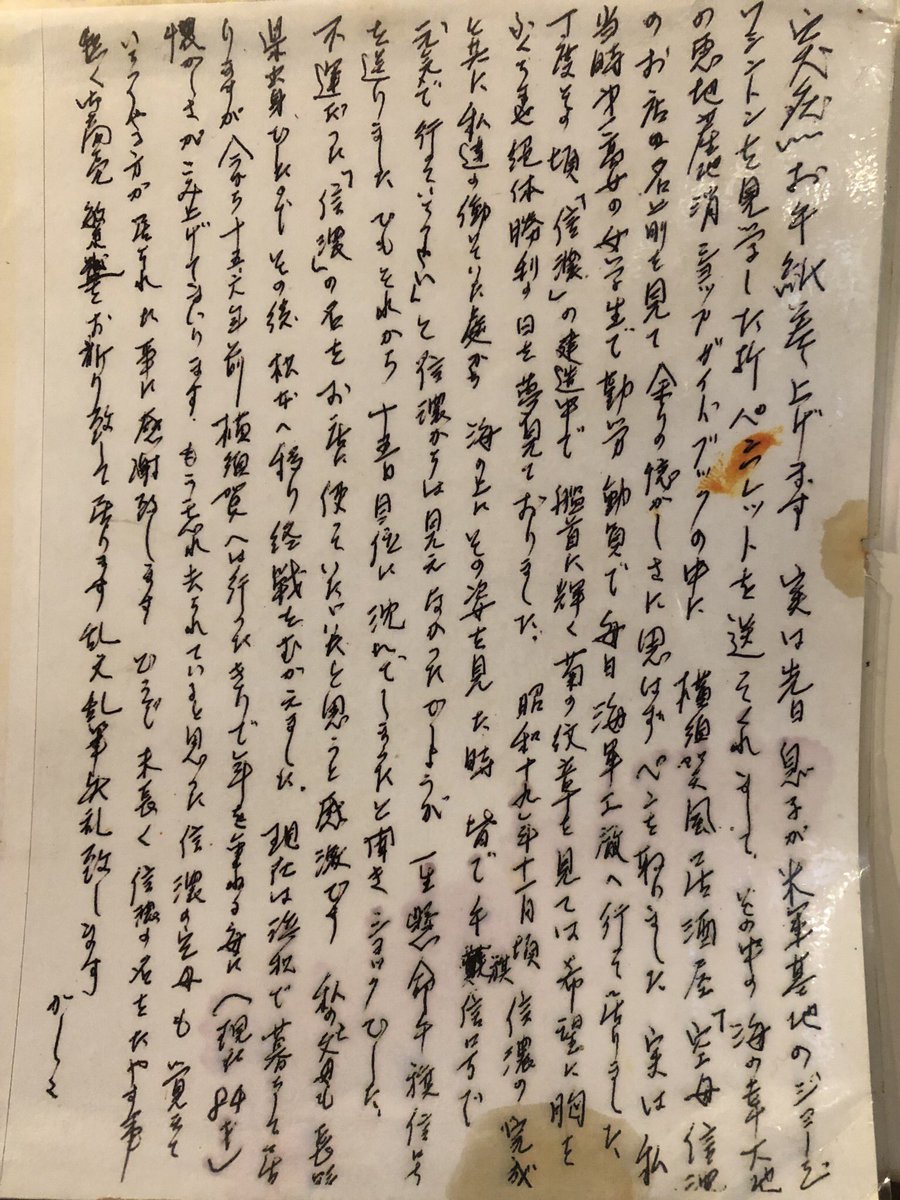 突然お手紙差上げます 実は先日 息子が米軍基地のジョージ
ワシントンを見学した折 パンフレットを送ってくれまして、その中の「海の幸大地
の恵地産地消ショップガイドブックの中に 横須賀風居酒屋「空母信濃
のお店の名前を見て 余りの懐かしさに思はずペンを取りました 実は私
当時 高女の女学生で勤労動員で毎日海軍工廠へ行って居りました
丁度その頃「信濃」の建造中で 艦首に輝く菊の紋章を見ては希望に胸を
ふくらませ絶体勝利の日を夢見ておりました。 昭和十九年十一月頃 信濃の完成
と共に私達の働いていた庭から 海の上にその姿を見た時 皆で手旗信号で
元気で行っていらっしゃい」と 信濃からは見えなかったでしょうが 一生懸命手旗信号
を送りました でもそれから 十五日目位に沈んでしまったと聞き ショックでした。
不運だった「信濃」の名をお店に使っていたゞいたと思うと感激です 私の父母も長野
県出身でしたのでその後 松本へ移り終戦をむかえました。 現在は浜松で暮らして居
りますが 今から十五、六年前 横須賀へは行ったきりで年を重ねる毎に (現在84才)
懐かしさがこみ上げてまいります。 もう忘れ去られていると思った信濃の空母も 覚えて
いらっしゃる方が居られた事に感謝致します どうぞ末長く信濃の名をたやす事
無く御商売繁盛をお祈り致して居ります 乱文乱筆失礼致します
かしこ